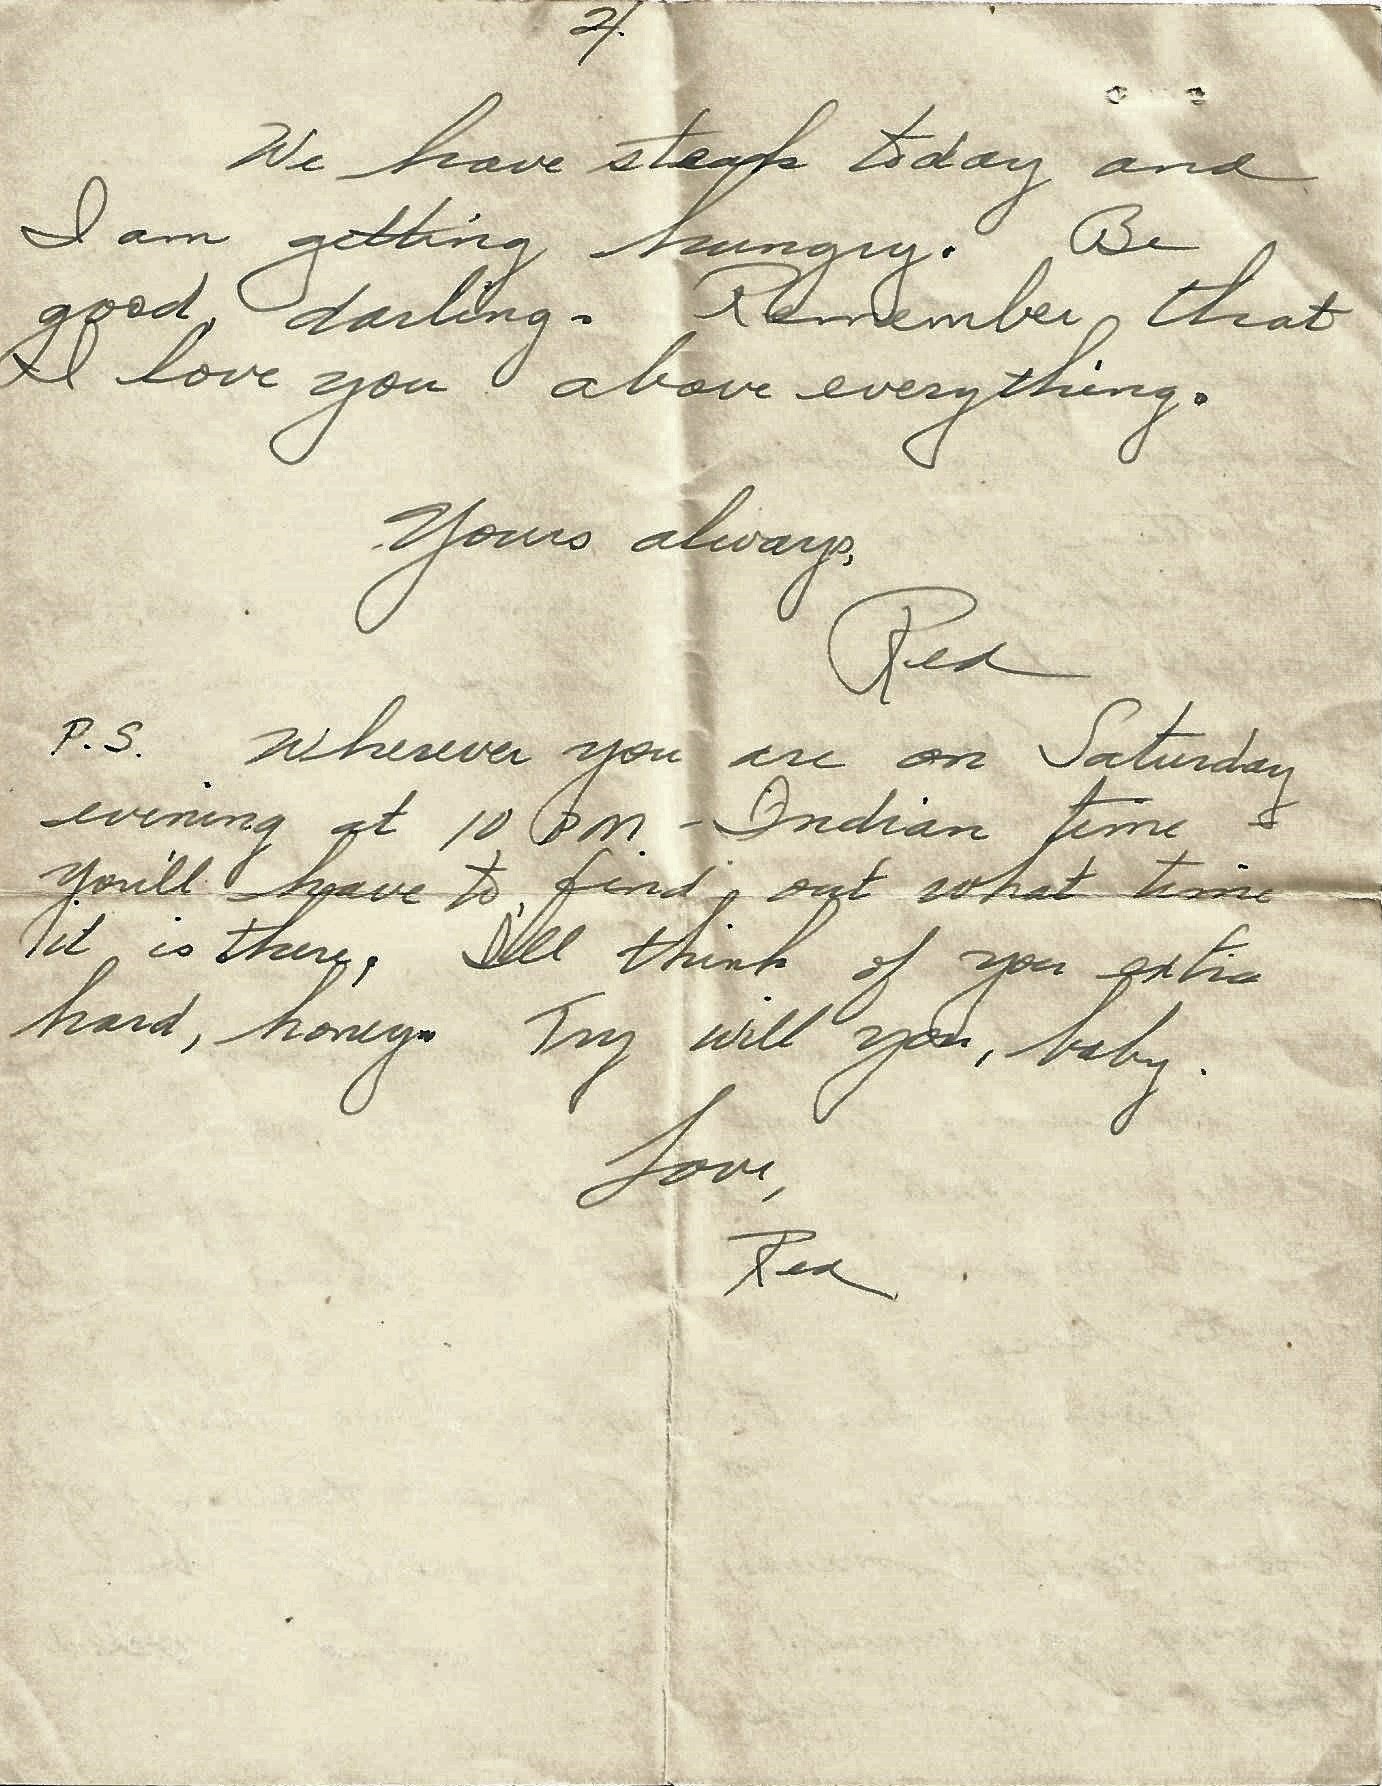 4.
We have steak today and
I am getting hungry. Be
good, darling. Remember that
I love you above everything.
Yours always,
Red
P.S. Wherever you are on Saturday
evening at 10 PM - Indian time -
you'll have to find out what time
it is there, I'll think of you extra
hard, honey. Try will you, baby.
Love,
Red